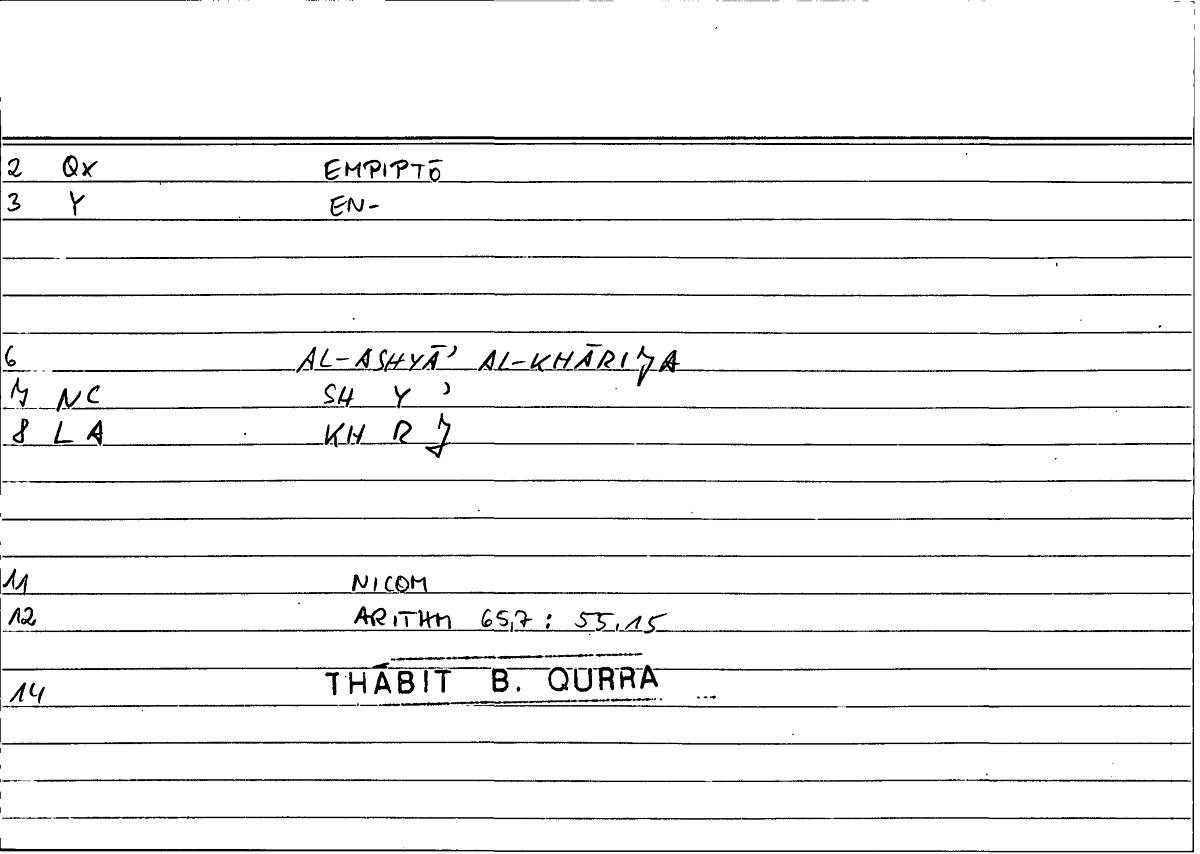 2 QX EMPIPTŌ
3 Y EN-
6 AL-ASHYĀʾ AL-KHĀRIJA
7 NC SH Y ʾ
8 LA KH R J
11 NICOM
12 ARITHM 65,7 : 55,15
14 THĀBIT B. QURRA